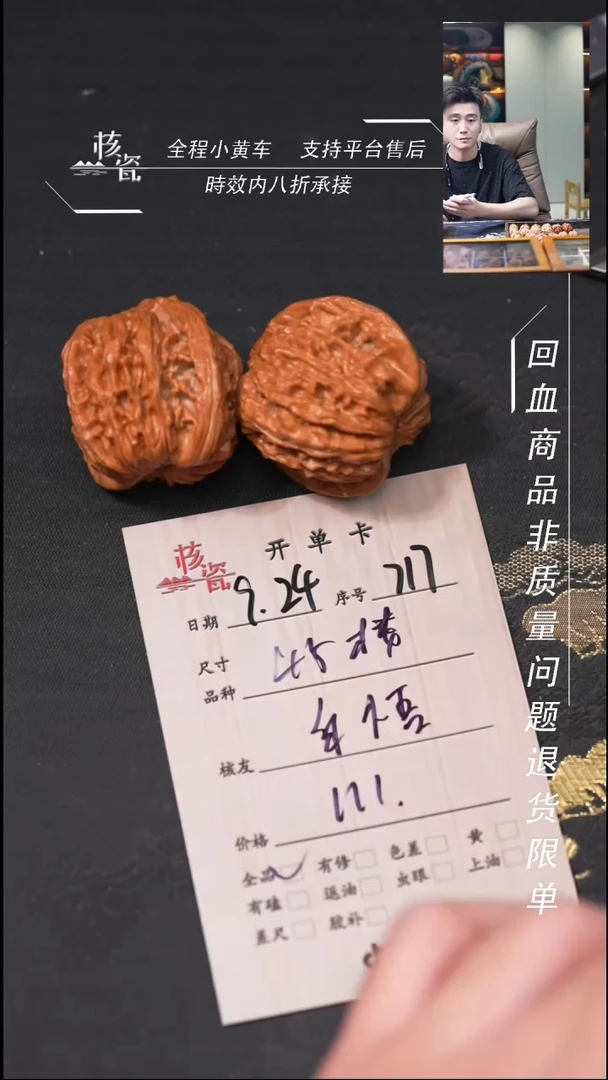 核瓷
全程小黄车 支持平台售后
時效内八折承接
回血商品非质量问题退货限单
核瓷
开单卡
日期 9.24 序号 717
尺寸
品种
核友
价格 111.
全品 有修 色差 黄
有磕 返油 虫眼 上油
差尺 胶补